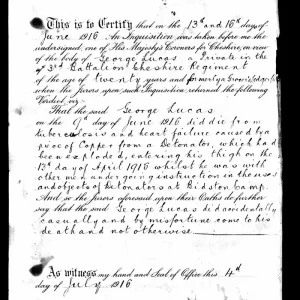 This is to Certify that on the 13th and 16th day of
June 1916 An Inquisition was taken before me the
undersigned, one of His Majesty's Coroners for Cheshire, on view
of the body of George Lucas a Private in the
3rd Battalion Cheshire Regiment
of the age of twenty years and formerly a
when the jurors upon such Inquisition returned the following
Verdict, viz:
That the said George Lucas
on the 9th day of June 1916 did die from
tuberculosis and heart failure caused by a
piece of Copper from a Detonator, which had
been exploded, entering his thigh on the
12th day of April 1916 whilst he was with
other men undergoing instruction in the uses
and objects of Detonators at Bidston Camp.
And so the jurors aforesaid upon their Oaths do further
say that the said George Lucas did accidentally
casually and by misfortune come to his
death and not otherwise
As witness my hand and Seal of Office this 4th
day of July 1916